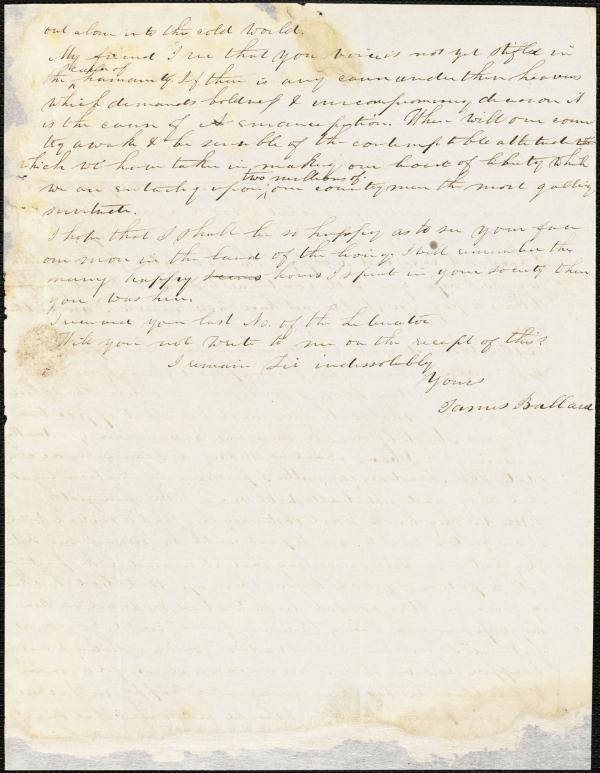 out alone into the cold world.
My friend I see that your voice is not yet stifled in
the cause of humanity. If there is any cause under the heavens
which demands boldness & uncompromising decision it
is the cause of Emancipation. When will our coun
try awake & be sensible of the contemptible attitude
which we have taken in making our boast of liberty while
we are entailing upon two millions of our countrymen the most galling
servitude.
I hope that I shall be so happy as to see your face
once more in the land of the living. I well remember the
many happy hours I spent in your society when
you was here.
I received your last No. of the Liberator
Will you not write to me on the receipt of this?
I remain Sir indissolubly
Yours
James Ballard